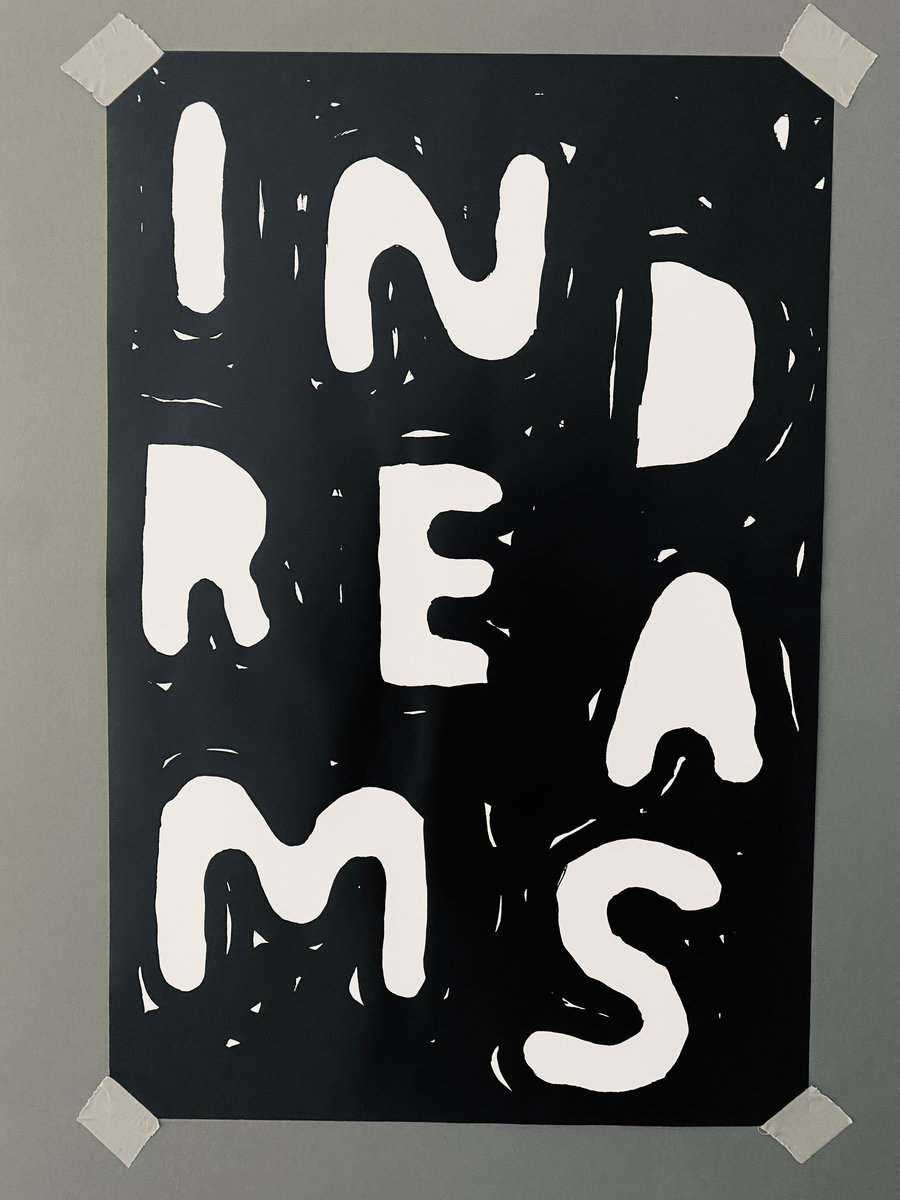 IN D
REA
MS